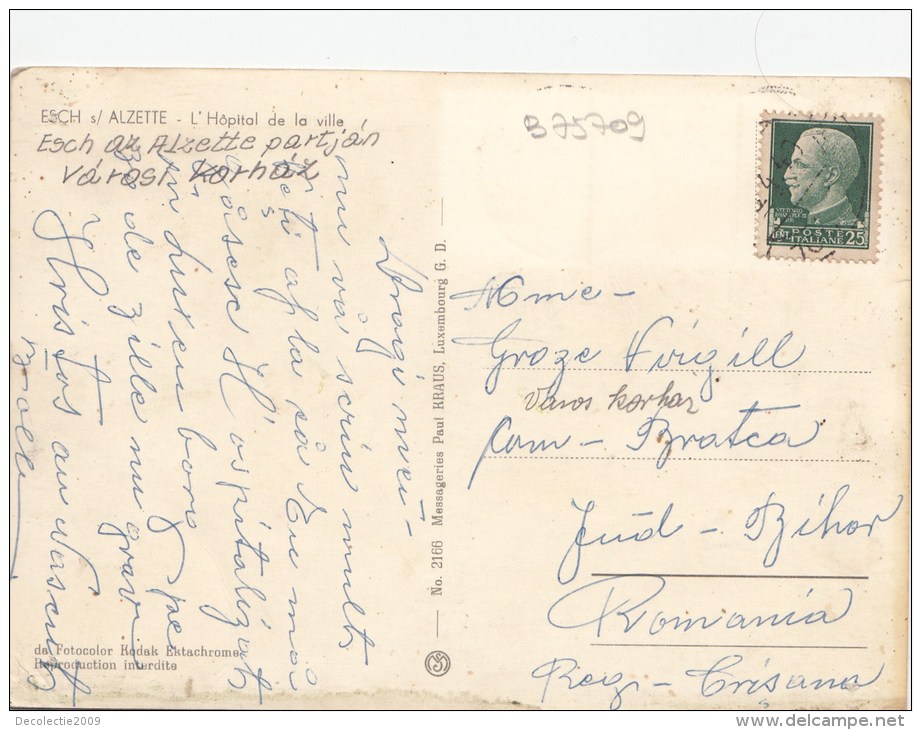 ESCH s/ ALZETTE - L'Hôpital de la ville
Esch az Alzette partján
Városi Korház
B 75709
POSTE
ITALIANE
CENT 25
Dragi mei -
nu vă scriu mult
află că Eu mă
găsesc H'ospitalizat
în
pe
30 de zille nu grav
Hristos au Născut
No. 2166 Messageries Paul KRAUS, Luxembourg G. D.
Mme -
Groze Virgill
Város korház
Com - Bratca
Jud - Bihor
Romania
Reg - Crișana
de Fotocolor Kodak Ektachrome
Reproduction interdite
Decolectie2009
www.delcampe.net